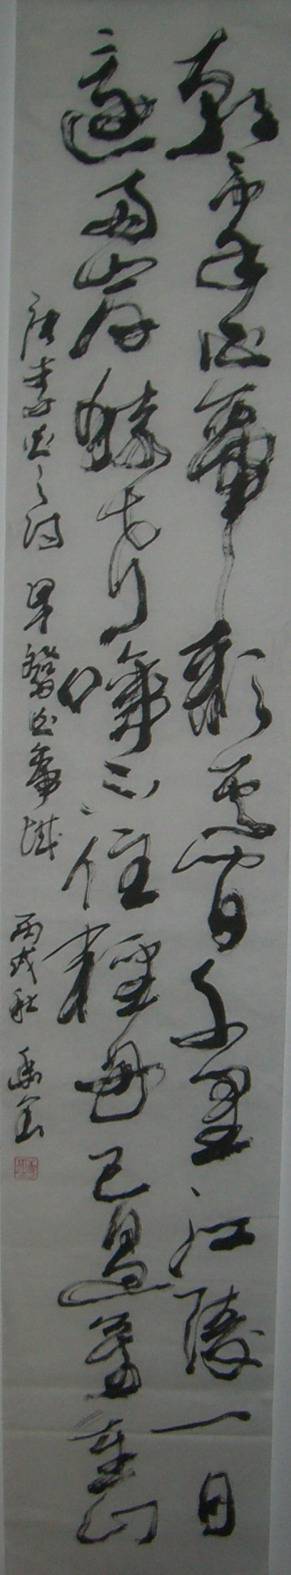 朝辞白帝彩雲間千里江陵一日
還兩岸猿声啼不住輕舟已過萬重山
唐李白之詩早發白帝城 丙戌秋